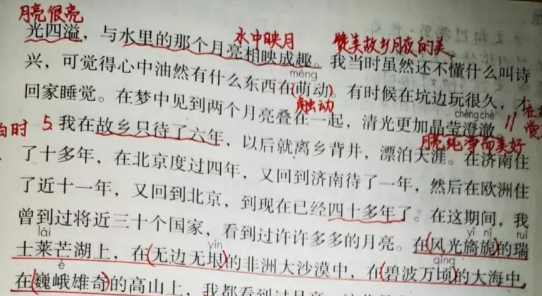 月亮很亮
水中映月 赞美故乡月夜的美
光四溢，与水里的那个月亮相映成趣。我当时虽然还不懂什么叫诗
méng
兴，可觉得心中油然有什么东西在萌动。有时候在坑边玩很久，才
触动
回家睡觉。在梦中见到两个月亮叠在一起，清光更加晶莹澄澈。
chéng chè
5 我在故乡只待了六年，以后就离乡背井，漂泊天涯。在济南住
了十多年，在北京度过四年，又回到济南待了一年，然后在欧洲住
了近十一年，又回到北京，到现在已经四十多年了。在这期间，我
曾到过将近三十个国家，看到过许许多多的月亮。在(风光旖旎)的瑞
lái yǐ nǐ ruì
士莱芒湖上，在(无边无垠)的非洲大沙漠中，在(碧波万顷)的大海中，
yín qǐng
é
在(巍峨雄奇)的高山上，我都看到过月亮，